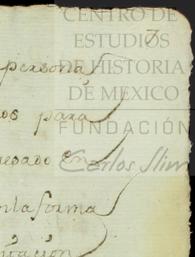 CENTRO DE
ESTUDIOS
DE HISTORIA
DE MEXICO
FUNDACIÓN
Carlos Slim
3
persona
os para
esado en
en la forma